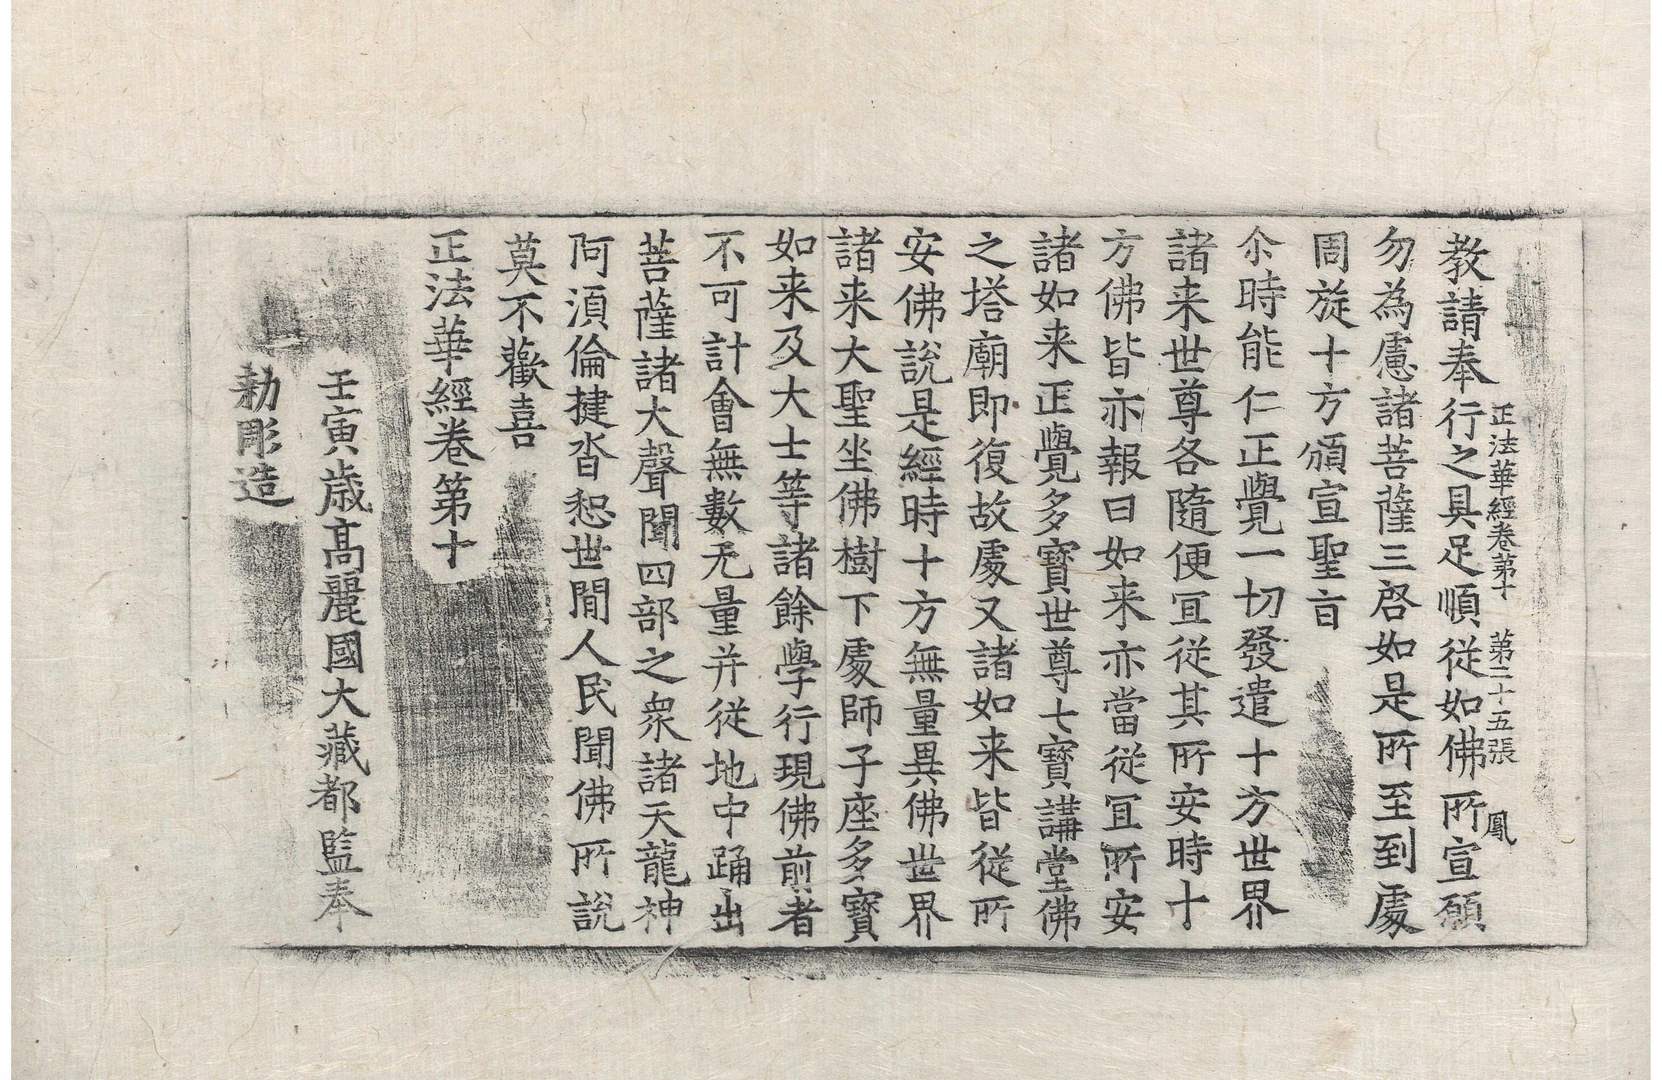 正法華經卷第十 第二十五張 鳳
教請奉行之具足順從如佛所宣願
勿為慮諸菩薩三啓如是所至到處
周旋十方頒宣聖旨
尒時能仁正覺一切發遣十方世界
諸来世尊各隨便冝從其所安時十
方佛皆亦報曰如来亦當從冝所安
諸如来正覺多寶世尊七寶講堂佛
之塔廟即復故處又諸如来皆從所
安佛說是經時十方無量異佛世界
諸来大聖坐佛樹下處師子座多寶
如来及大士等諸餘學行現佛前者
不可計會無數无量并從地中踊出
菩薩諸大聲聞四部之衆諸天龍神
阿湏倫揵沓惒世閒人民聞佛所說
莫不歡喜
正法華經卷第十
壬寅歲高麗國大藏都監奉
勅彫造